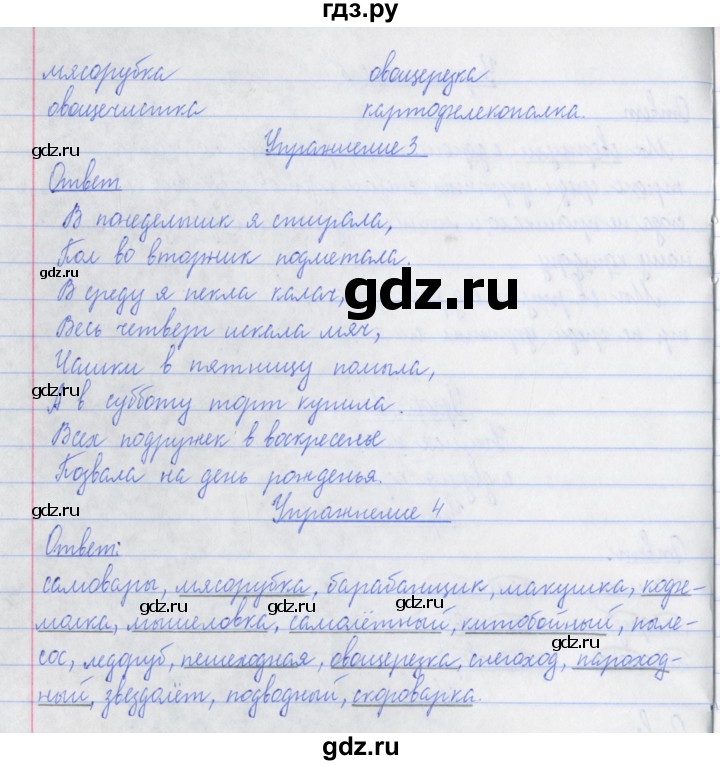 гдз.ру
мясорубка овощерезка
овощечистка картофелекопалка.
Упражнение 3
gdz.ru
Ответ
В понедельник я стирала,
Пол во вторник подметала.
gdz.ru
В среду я пекла калач,
gdz.ru
Весь четверг искала мяч,
Чашки в пятницу помыла,
gdz.ru
А в субботу торт купила.
Всех подружек в воскресенье
Позвала на день рожденья.
gdz.ru
Упражнение 4
Ответ:
самовары, мясорубка, барабанщик, макушка, кофе-
gdz.ru gdz.ru gdz.ru
молка, мышеловка, самолётный, китобойный, пыле-
сос, ледоруб, пешеходная, овощерезка, снегоход, пароход-
gdz.ru gdz.ru
ный, звездолёт, подводный, скороварка.
gdz.ru